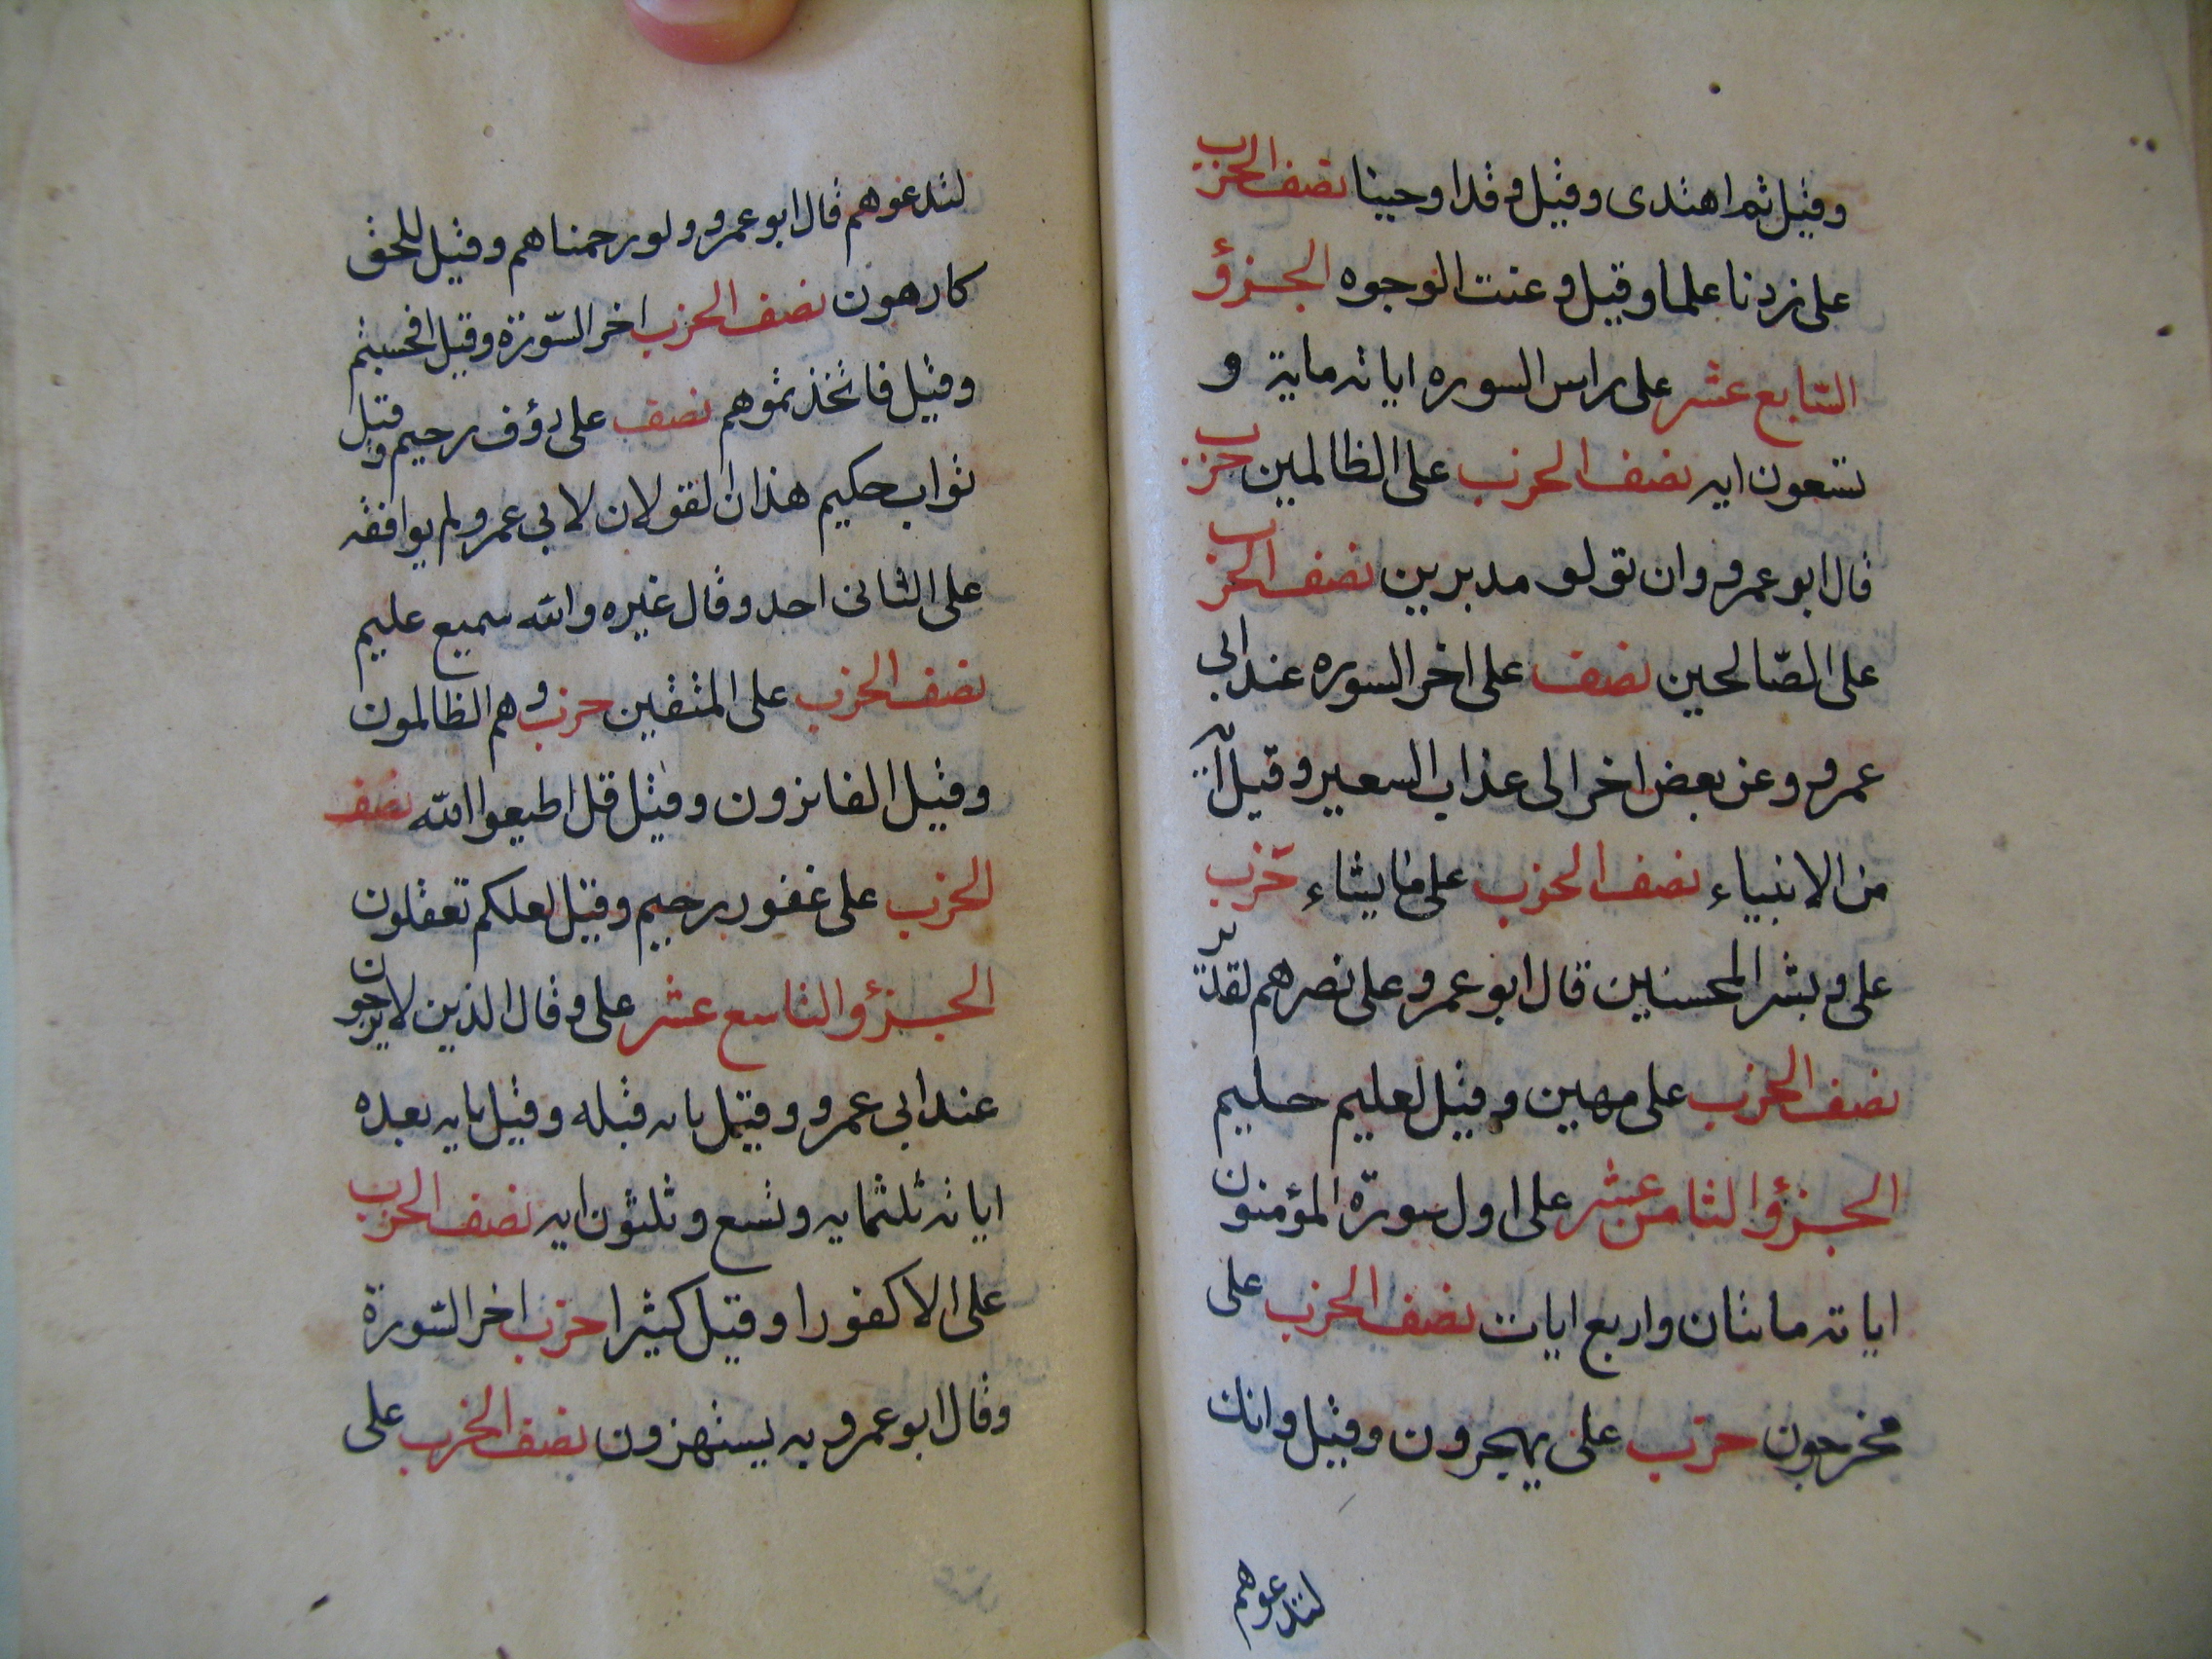 وقيل ثم اهتدى وقيل وقد اوحينا نصف الحزب
على زدنا علما وقيل وعنت الوجوه الجزؤ
السابع عشر على راس السوره اياته ماية و
تسعون ايه نصف الحزب على الظالمين حزب
قال ابو عمرو وان تولو مدبرين نصف الحزب
على الصّالحين نصف على اخر السوره عند ابي
عمرو وعن بعض اخر الى عذاب السعير وقيل
من الانبياء نصف الحزب على ما يشاء حزب
على وبشر المحسنين قال ابو عمرو على نصرهم لقدير
نصف الحزب على مهين وقيل لعليم حليم
الجزؤ الثامن عشر على اول سورة المؤمنون
اياته مايتان واربع ايات نصف الحزب على
مخرجون حزب على يهجرون وقيل وانك
لتدعوهم
لتدعوهم قال ابو عمرو ولو رحمناهم وقيل للحق
كارهون نصف الحزب اخر السّورة وقيل افحسبتم
وقيل فاتخذتموهم نصف على رؤف رحيم وقيل
تواب حكيم هذان القولان لابي عمرو ولم يوافقه
على الثانى احد وقال غيره والله سميع عليم
نصف الحزب على المتقين حزب وهم الظالمون
وقيل الفائزون وقيل قل اطيعوا الله نصف
الحزب على غفور رحيم وقيل لعلكم تعقلون
الجزؤ التاسع عشر على وقال الذين لا يرجون
عند ابي عمرو وقيل بايه قبله وقيل بايه بعده
اياته ثلثمايه وتسع وثلثون ايه نصف الحزب
على الا كفورا وقيل كثيرا حزب اخر السّورة
وقال ابو عمرو به يستهزون نصف الحزب على